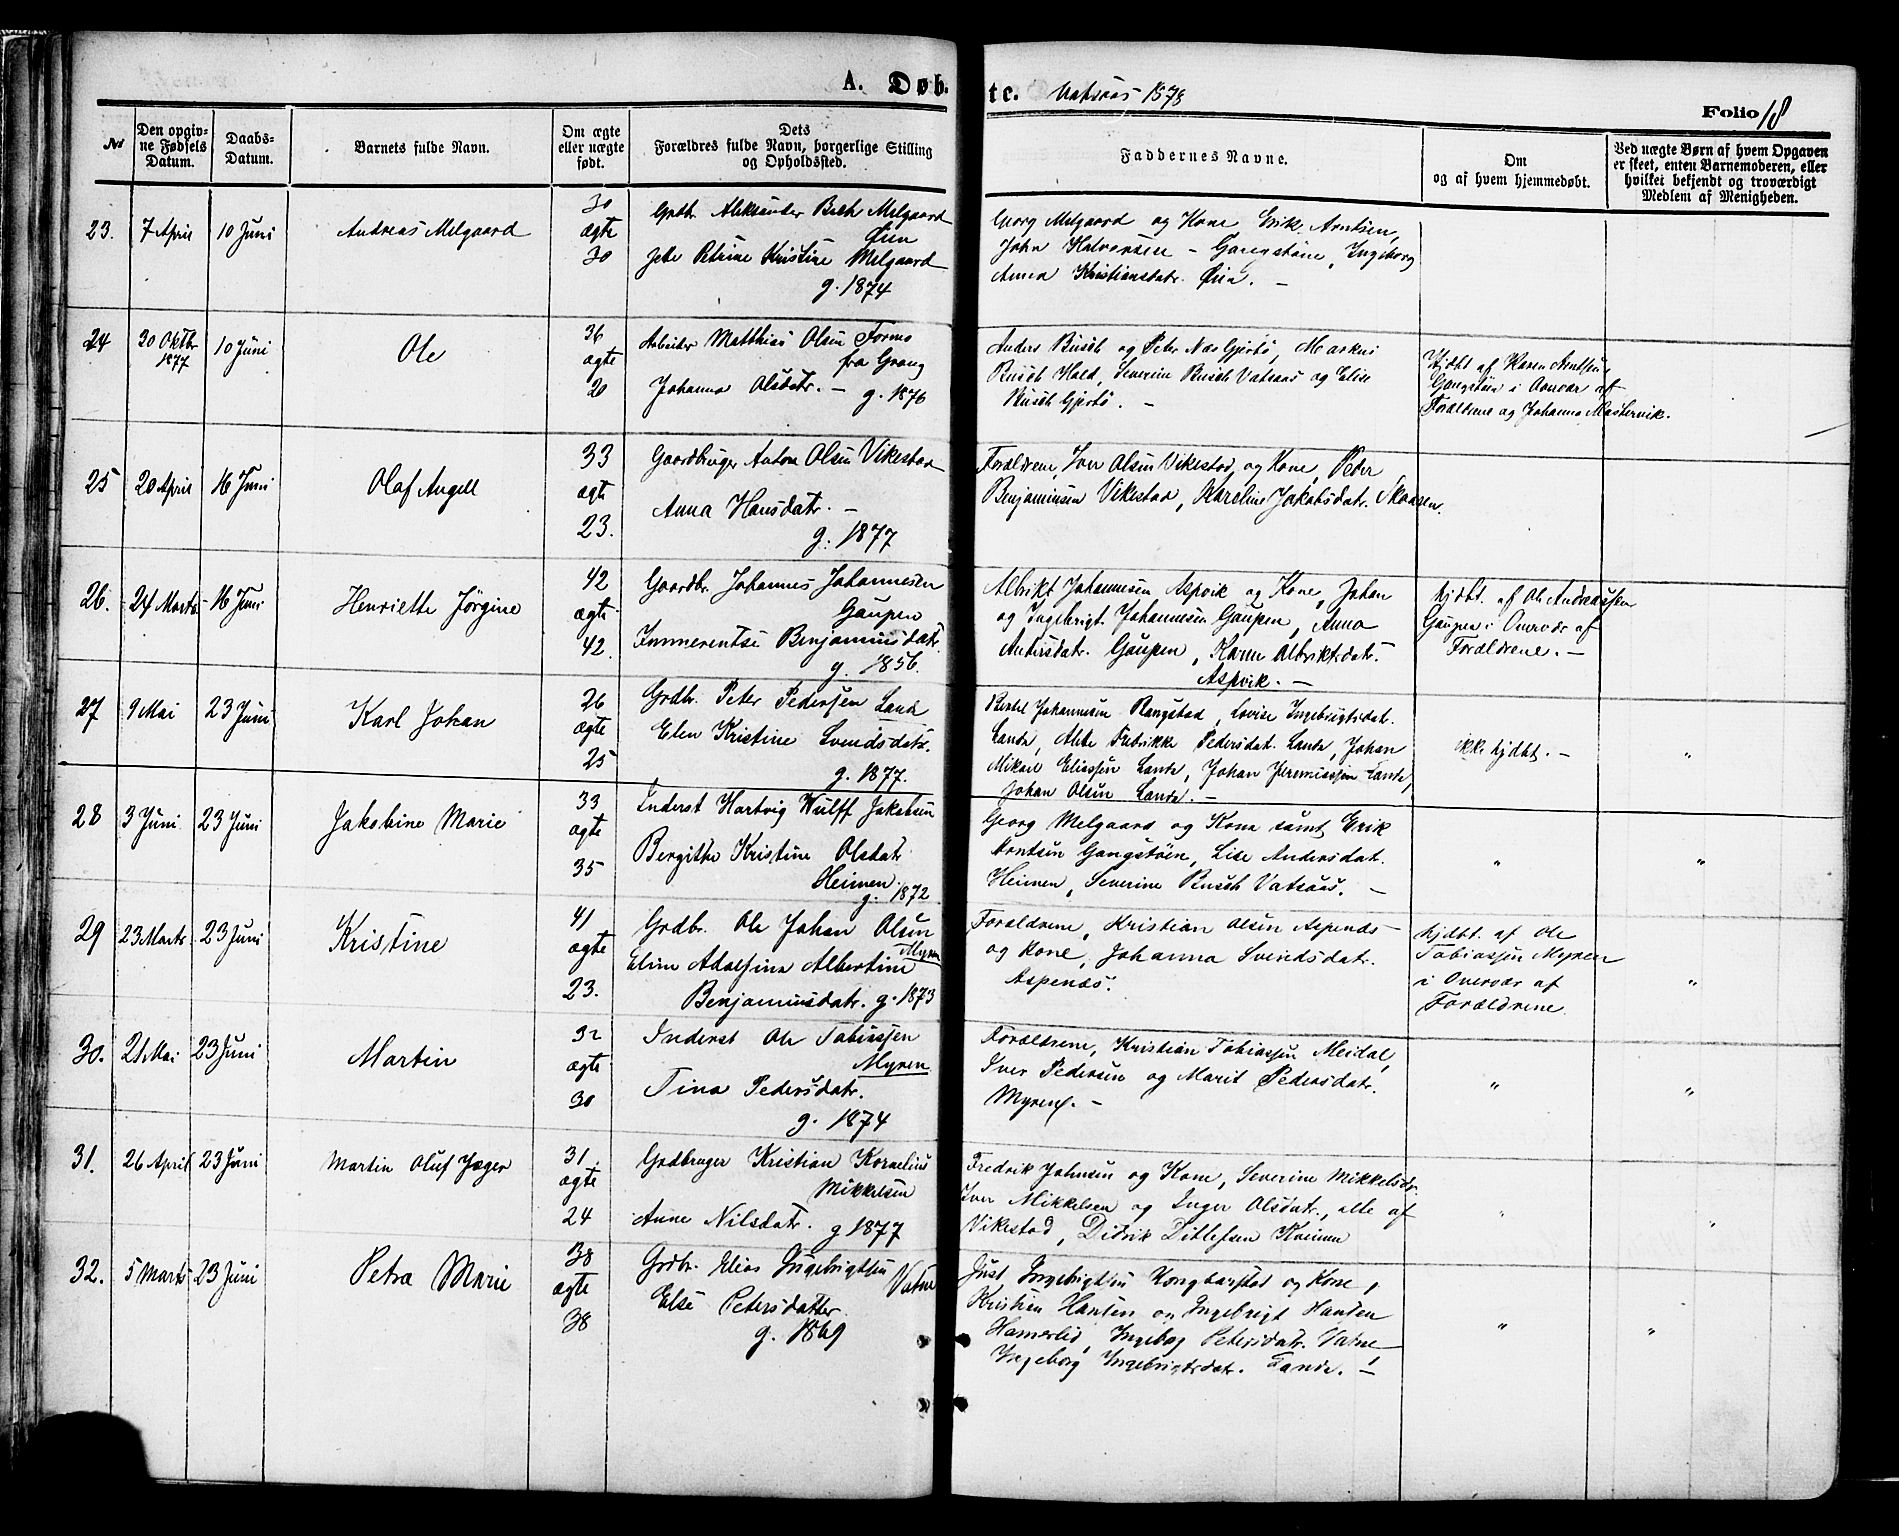 A. Døb-
te. Vatsaas 1878
Folio 18
№
Den opgiv-
ne Fødsels
Datum.
Daabs-
Datum.
Barnets fulde Navn.
Om ægte
eller uægte
født.
Dets
Forældres fulde Navn, borgerlige Stilling
og Opholdssted.
Faddernes Navne.
Om
og af hvem hjemmedøbt.
Ved uægte Børn af hvem Opgaven
er skeet, enten Barnemoderen, eller
hvilket bekjendt og troværdigt
Medlem af Menigheden.
23. 7 April 10 Juni Andreas Melgaard
30
ægte
30
Grdbr. Aleksander Bech Melgaard
Øien
Jete Petrine Kristine Melgaard
g. 1874
Georg Melgaard og Kone, Erik Arntsen,
John Halvorsen - Gangstøen, Ingeborg
Anna Kristiansdatr. Øia. -
24 30 Oktbr 1877 10 Juni Ole
36
ægte
20
Arbeider Matthias Olsen Formo
fra Grong
Johanna Olsdatr. - g. 1876
Anders Busch og Peter Næs Gjerbø, Markus
Busch Hald, Severine Busch Vatsaas og Elise
Busch Gjerbø. -
Hjdbt af Karen Arntsen,
Gangstøen i Overvær af
Forældrene og Johanna Mastervik.
25 20 April 16 Juni Olaf Angell
33
ægte
23.
Gaardbruger Anton Olsen Vikestad
Anna Hansdatr. -
g. 1877
Forældrene, Iver Olsen Vikestad og Kone, Peter
Benjaminsen Vikestad, Karoline Jakobsdatr. Skaaren.
26. 24 Marts 16 Juni Henriette Jørgine
42
ægte
42.
Gaardbr. Johannes Johannesen
Gaupen
Immerentse Benjaminsdatr.
g. 1856.
Albrikt Johannesen Aspvik og Kone, Johan
og Ingebrigt Johannesen Gaupen, Anna
Andersdatr. Gaupen, Karen Albriktsdatr.
Aspvik. -
hjdbt. af Ole Andreassen
Gaupen i Overvær af
Forældrene. -
27 9 Mai 23 Juni Karl Johan
26
ægte
25
Grdbr. Peter Pedersen Lande
Elen Kristine Svendsdatr.
g. 1877.
Bertel Johannesen Rangstad, Lovise Ingebrigtsdat.
Lande, Aleta Fredrikke Pedersdat. Lande, Johan
Mikael Eliassen Lande, Johan Jeremiassen Lande,
Johan Olsen Lande. -
ikke hjdbt. - "
28 3 Juni. 23 Juni Jakobine Marie
33
ægte
35
Inderst Hartvig Wulff Jakobsen
Bergitte Kristine Olsdatr
Heimen.
g. 1872
Georg Melgaard og Kone samt Erik
Arntsen Gangstøen, Lise Andersdat.
Heimen, Severine Busch Vatsaas. -
" "
29 23 Marts. 23 Juni Kristine
41
ægte
23.
Grdbr. Ole Johan Olsen
Myren
Eline Adolfina Albertine
Benjaminsdatr. g. 1873
Forældrene, Kristian Olsen Aspenæs
og Kone, Johanna Svendsdatr.
Aspenæs.
hjdbt. af Ole
Tobiassen Myren
i Overvær af
Forældrene. "
30. 21 Mai 23 Juni Martin
32
ægte
30
Inderst Ole Tobiassen
Myren
Tina Pedersdatr.
g. 1874
Forældrene, Kristian Tobiassen Meidal,
Iver Pedersen og Marit Pedersdatr.
Myren. -
" "
31. 26 April 23 Juni Martin Oluf Jæger
31.
ægte
24
Grdbruger Kristian Kornelius
Mikkelsen
Anne Nilsdatr. g 1877
Fredrik Johnsen og Kone, Severine Mikkelsdr.
Iver Mikkelsen og Inger Olsdatr., alle af
Vikestad, Didrik Ditlefsen Kveinen
" "
32. 5 Marts 23 Juni Petra Marie
38
ægte
38
Grdbr. Elias Ingebrigtsen Vatne
Else Petersdatter.
g. 1869
Just Ingebrigtsen Kongbarstad og Kone,
Kristian Hansen og Ingebrigt Hansen
Hamerlid, Ingebog Petersdatr. Vatne,
Ingeborg Ingebrigtsdat. Lande. -
" "